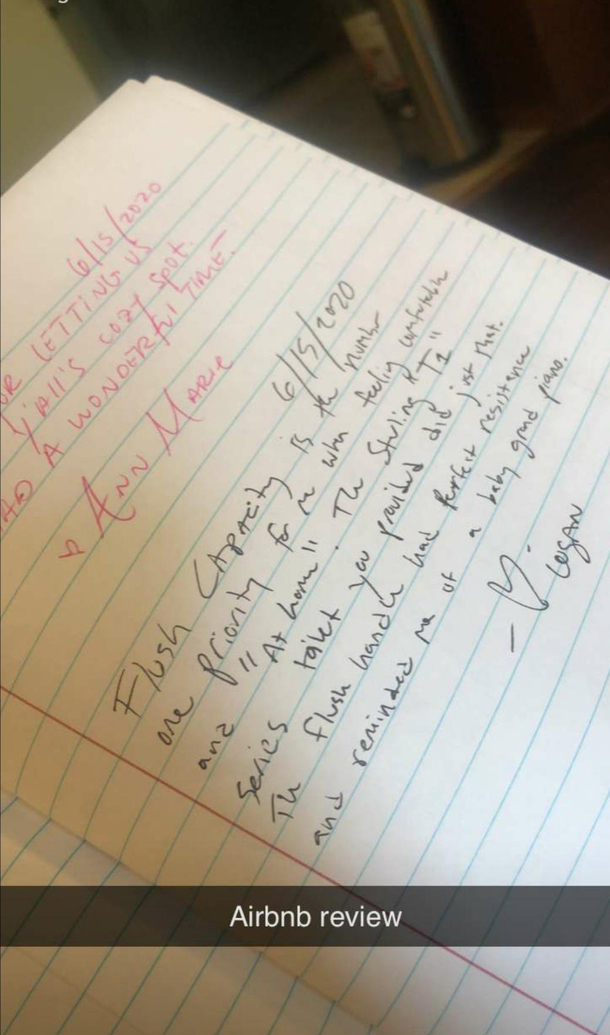 6/15/2020
OR LETTING US
y'all's COZY SPOT.
HAD A WONDERFUL TIME.
ANN MARIE
6/15/2020
Flush Capacity is the number
one Priority for me when feeling comfortable
and "At home". The Sterling RT2"
Series toilet you provided did just that.
The flush handle had perfect resistance
and reminded me of a baby grand piano.
- LOGAN
Airbnb review